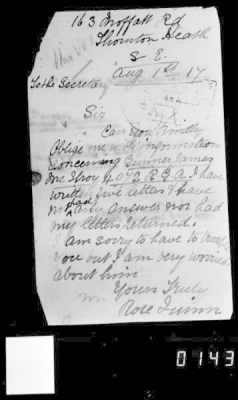 163 Moffatt Rd
Thornton Heath
S E.
Aug 1st 17
To the Secretary
Sir
Can you kindly
Oblige me with information
Concerning Gunner James
Mc Elroy R.G.A. I have
written five letters & have
not had any answer nor had
my letters returned.
I am sorry to have to trouble
you but I am very worried
about him
Yours Truly
Rose Quinn
0143